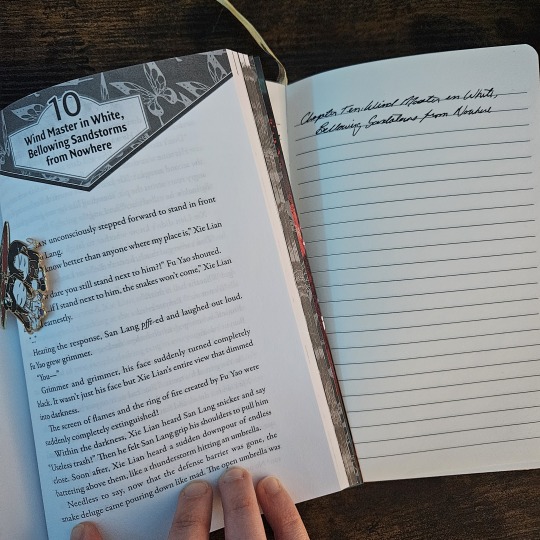 10
Wind Master in White,
Bellowing Sandstorms
from Nowhere
unconsciously stepped forward to stand in front
Lang.
know better than anyone where my place is," Xie Lian
dare you still stand next to him?!" Fu Yao shouted.
if I stand next to him, the snakes won't come," Xie Lian
earnestly.
Hearing the response, San Lang pfft-ed and laughed out loud.
Fu Yao grew grimmer.
"You—"
Grimmer and grimmer, his face suddenly turned completely
black. It wasn't just his face but Xie Lian's entire view that dimmed
into darkness.
The screen of flames and the ring of fire created by Fu Yao were
suddenly completely extinguished!
Within the darkness, Xie Lian heard San Lang snicker and say
"Useless trash!" Then he felt San Lang grip his shoulders to pull him
close. Soon after, Xie Lian heard a sudden downpour of endless
battering above them, like a thunderstorm hitting an umbrella.
Needless to say, now that the defense barrier was gone, the
snake deluge came pouring down like mad. The open umbrella was
Chapter Ten: Wind Master in White,
Bellowing Sandstorms from Nowhere